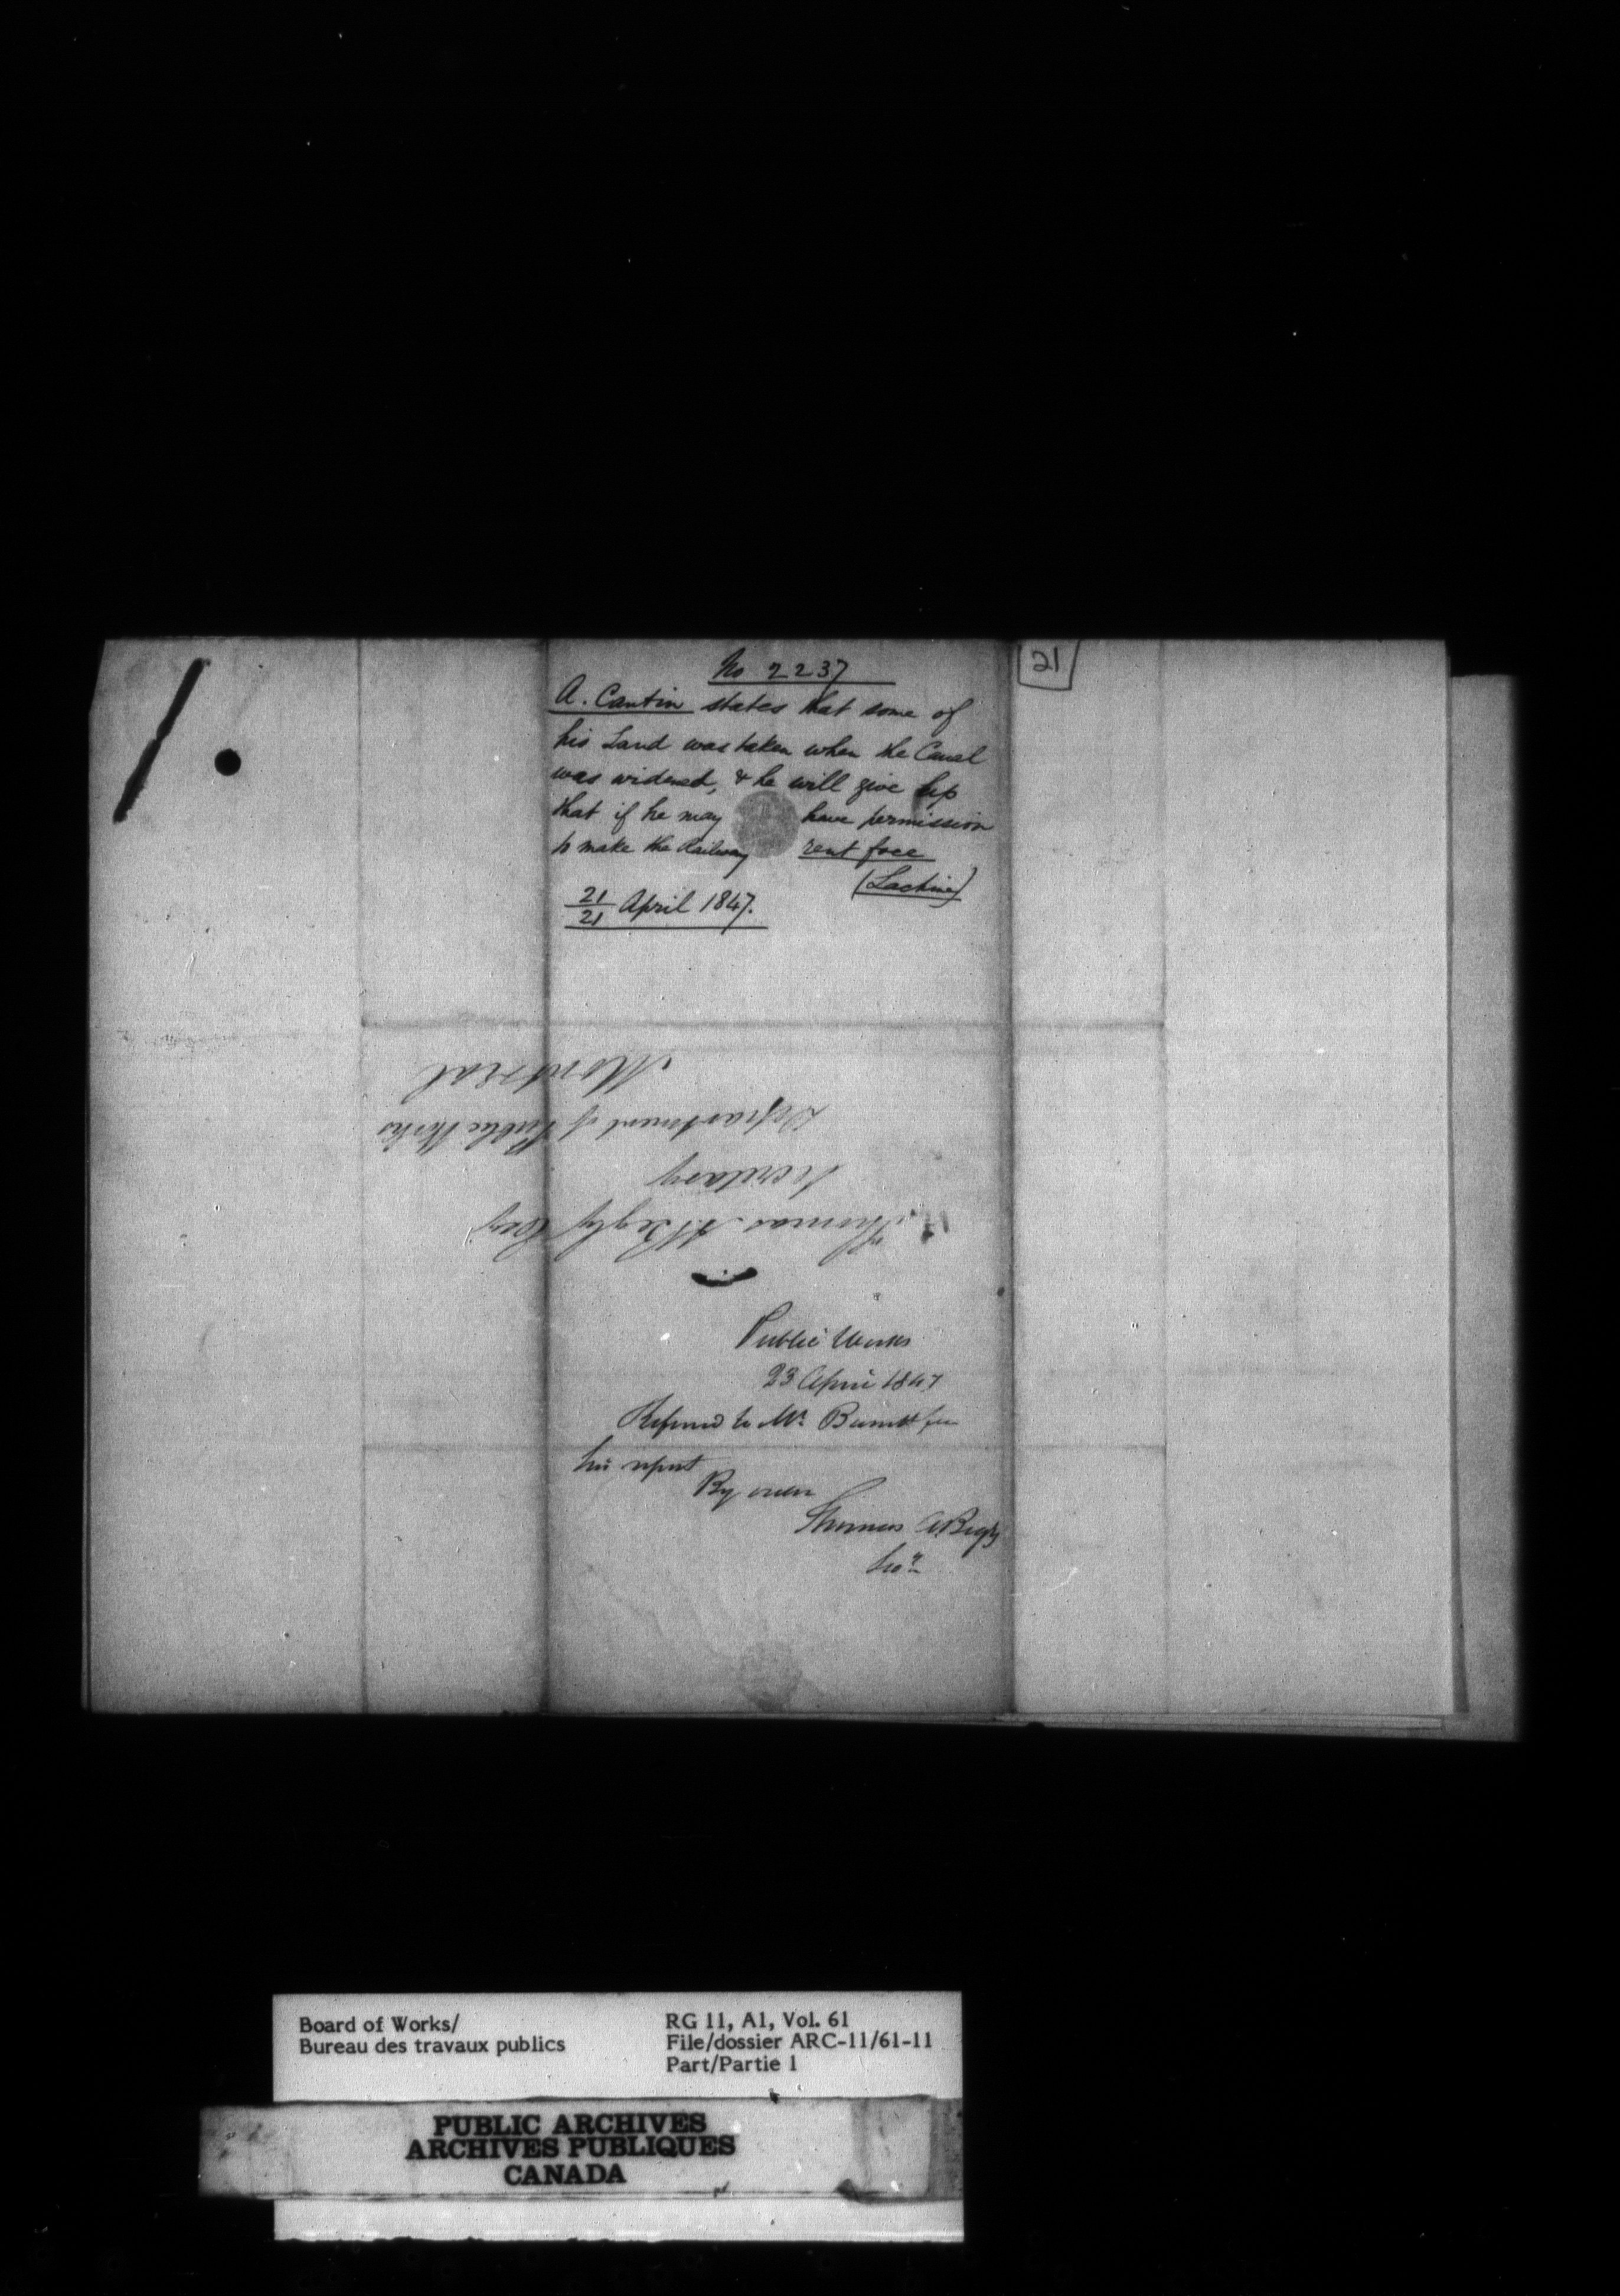 No 2237
A. Cantin states that some of
his Land was taken when the Canal
was widened, & he will give up
that if he may have permission
to make the Railway rent free
(Lachine)
21/21 April 1847.
21
Thomas A Begly Esq
Secretary
Department of Public Works
Montreal
Public Works
23 April 1847
Referred to Mr. Barrett for
his report
By order
Thomas A. Begly
Secy
Board of Works/
Bureau des travaux publics
RG 11, A1, Vol. 61
File/dossier ARC-11/61-11
Part/Partie 1
PUBLIC ARCHIVES
ARCHIVES PUBLIQUES
CANADA